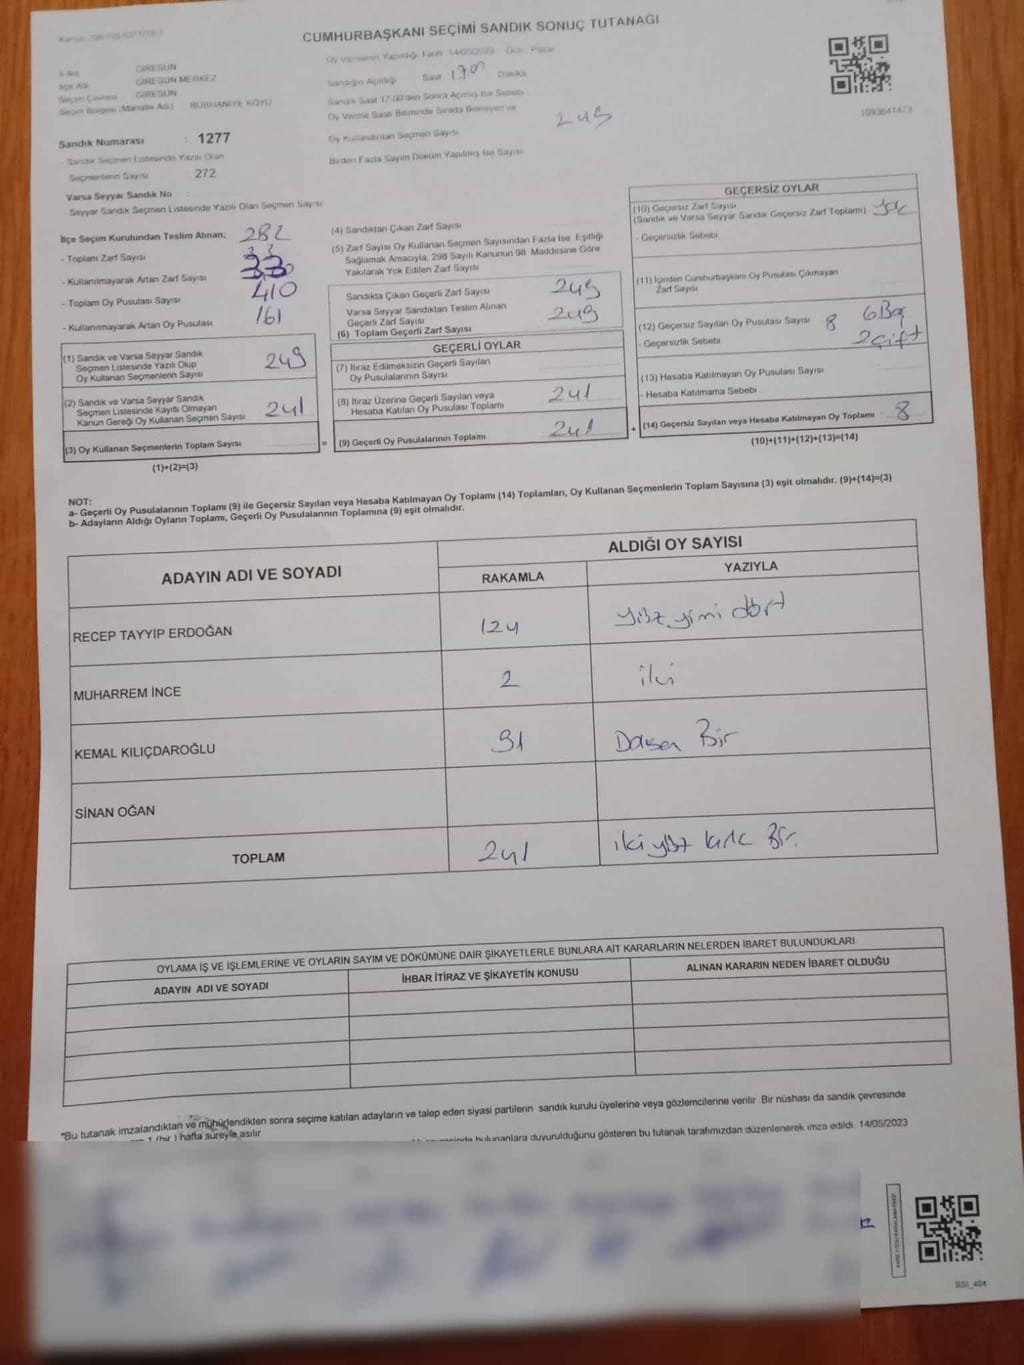 CUMHURBAŞKANI SEÇİMİ SANDIK SONUÇ TUTANAĞI
GİRESUN
İlçe Adı GİRESUN MERKEZ
Seçim Çevresi GİRESUN
Seçim Bölgesi (Mahalle Adı) BURHANİYE KÖYÜ
Sandık Numarası : 1277
- Sandık Seçmen Listesinde Yazılı Olan
Seçmenlerin Sayısı 272
Varsa Seyyar Sandık No
- Seyyar Sandık Seçmen Listesinde Yazılı Olan Seçmen Sayısı
Oy Vermenin Yapıldığı Tarih 14/05/2023 Gün Pazar
Sandığın Açıldığı Saat 17.00 Dakika
Sandık Saat 17.00'den Sonra Açılmış İse Sebebi
Oy Verme Saati Bitiminde Sırada Bekleyen ve
Oy Kullandırılan Seçmen Sayısı 249
Birden Fazla Sayım Döküm Yapılmış İse Sayısı
1093641473
İlçe Seçim Kurulundan Teslim Alınan;
- Toplam Zarf Sayısı 282
- Kullanılmayarak Artan Zarf Sayısı 33
- Toplam Oy Pusulası Sayısı 410
- Kullanılmayarak Artan Oy Pusulası 161
(1) Sandık ve Varsa Seyyar Sandık
Seçmen Listesinde Yazılı Olup
Oy Kullanan Seçmenlerin Sayısı 249
(2) Sandık ve Varsa Seyyar Sandık
Seçmen Listesinde Kayıtlı Olmayan
Kanun Gereği Oy Kullanan Seçmen Sayısı 241
(3) Oy Kullanan Seçmenlerin Toplam Sayısı =
(1)+(2)=(3)
(4) Sandıktan Çıkan Zarf Sayısı
(5) Zarf Sayısı Oy Kullanan Seçmen Sayısından Fazla İse, Eşitliği
Sağlamak Amacıyla, 298 Sayılı Kanunun 98. Maddesine Göre
Yakılarak Yok Edilen Zarf Sayısı
Sandıkta Çıkan Geçerli Zarf Sayısı 249
Varsa Seyyar Sandıktan Teslim Alınan
Geçerli Zarf Sayısı 249
(6) Toplam Geçerli Zarf Sayısı
GEÇERLİ OYLAR
(7) İtiraz Edilmeksizin Geçerli Sayılan
Oy Pusulalarının Sayısı
(8) İtiraz Üzerine Geçerli Sayılan veya
Hesaba Katılan Oy Pusulası Toplamı 241
(9) Geçerli Oy Pusulalarının Toplamı 241 +
GEÇERSİZ OYLAR
(10) Geçersiz Zarf Sayısı
(Sandık ve Varsa Seyyar Sandık Geçersiz Zarf Toplamı) yok
- Geçersizlik Sebebi
(11) İçinden Cumhurbaşkanı Oy Pusulası Çıkmayan
Zarf Sayısı
(12) Geçersiz Sayılan Oy Pusulası Sayısı 8 6 Boş
- Geçersizlik Sebebi 2 çift
(13) Hesaba Katılmayan Oy Pusulası Sayısı
- Hesaba Katılmama Sebebi
(14) Geçersiz Sayılan veya Hesaba Katılmayan Oy Toplamı 8
(10)+(11)+(12)+(13)=(14)
NOT:
a- Geçerli Oy Pusulalarının Toplamı (9) ile Geçersiz Sayılan veya Hesaba Katılmayan Oy Toplamı (14) Toplamları, Oy Kullanan Seçmenlerin Toplam Sayısına (3) eşit olmalıdır. (9)+(14)=(3)
b- Adayların Aldığı Oyların Toplamı, Geçerli Oy Pusulalarının Toplamına (9) eşit olmalıdır.
ADAYIN ADI VE SOYADI ALDIĞI OY SAYISI
RAKAMLA YAZIYLA
RECEP TAYYİP ERDOĞAN 124 yüz yimi dört
MUHARREM İNCE 2 iki
KEMAL KILIÇDAROĞLU 91 Doksan Bir
SİNAN OĞAN
TOPLAM 241 iki yüz kırk Bir.
OYLAMA İŞ VE İŞLEMLERİNE VE OYLARIN SAYIM VE DÖKÜMÜNE DAİR ŞİKAYETLERLE BUNLARA AİT KARARLARIN NELERDEN İBARET BULUNDUKLARI
ADAYIN ADI VE SOYADI İHBAR İTİRAZ VE ŞİKAYETİN KONUSU ALINAN KARARIN NEDEN İBARET OLDUĞU
*Bu tutanak imzalandıktan ve mühürlendikten sonra seçime katılan adayların ve talep eden siyasi partilerin sandık kurulu üyelerine veya gözlemcilerine verilir. Bir nüshası da sandık çevresinde
1 (bir) hafta süreyle asılır
bulunanlara duyurulduğunu gösteren bu tutanak tarafımızdan düzenlenerek imza edildi. 14/05/2023
BSI_404